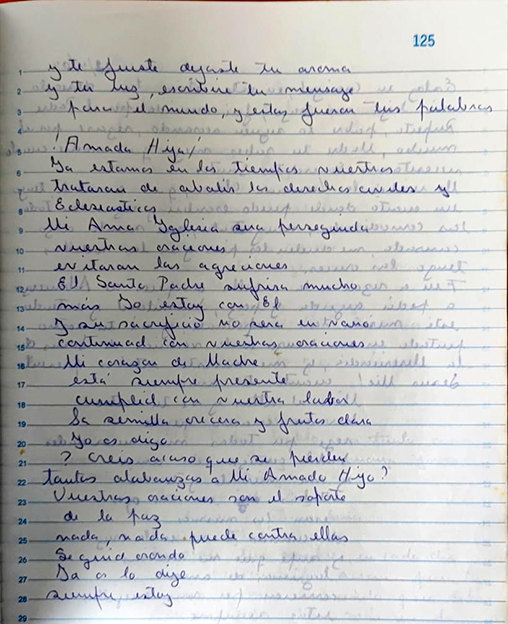 125
y te fuiste dejaste tu aroma
y tu luz, escribiré tu mensaje
para el mundo, y estas fueron tus palabras
¡Amada Hija!
Ya estamos en los tiempos vuestros
trataran de abolir los derechos civiles y
Eclesiasticos
Mi Amada Iglesia sera perseguida
vuestras oraciones
evitaran las agreciones
El Santo Padre sufrira mucho
mas Yo estoy con El
Y su sacrificio no sera en vano
continuad con vuestras oraciones
Mi corazon de Madre
está siempre presente
cumplid con vuestra labor
La semilla crecera y frutos dara
Yo os digo
? Creis acaso que se pierden
tantas alabanzas a Mi Amado Hijo?
Vuestras oraciones son el soporte
de la paz
nada, nada puede contra ellas
Seguid orando
Ya os lo dije
siempre estoy